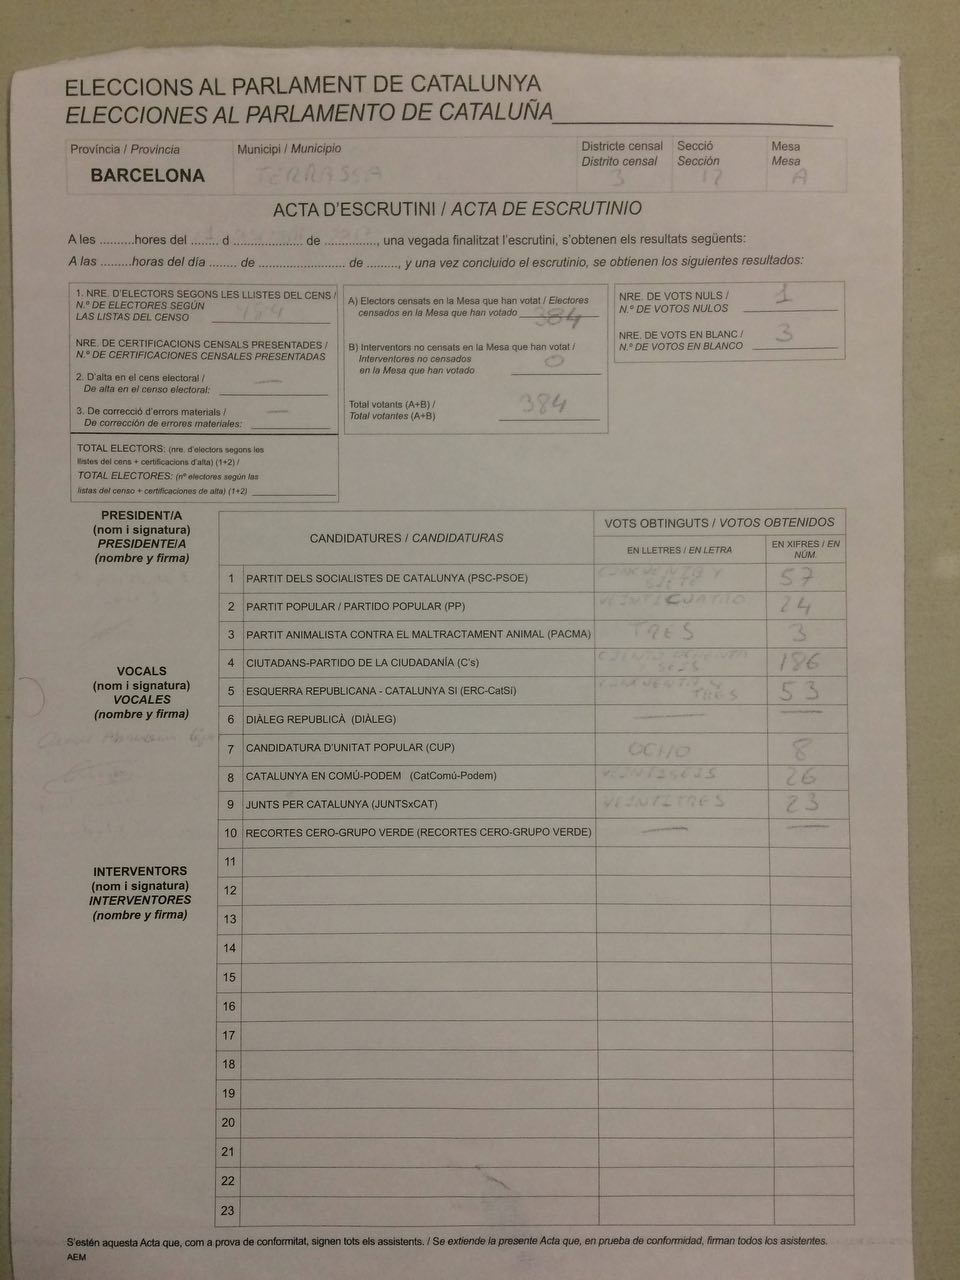 ELECCIONS AL PARLAMENT DE CATALUNYA
ELECCIONES AL PARLAMENTO DE CATALUÑA
Província / Provincia
BARCELONA
Municipi / Municipio
TERRASSA
Districte censal
Distrito censal
3
Secció
Sección
17
Mesa
Mesa
A
ACTA D'ESCRUTINI / ACTA DE ESCRUTINIO
A les ..........hores del ........ d .................... de ..............., una vegada finalitzat l'escrutini, s'obtenen els resultats següents:
A las .........horas del día ........ de ......................... de ........., y una vez concluido el escrutinio, se obtienen los siguientes resultados:
1. NRE. D'ELECTORS SEGONS LES LLISTES DEL CENS /
N.º DE ELECTORES SEGÚN
LAS LISTAS DEL CENSO
NRE. DE CERTIFICACIONS CENSALS PRESENTADES /
N.º DE CERTIFICACIONES CENSALES PRESENTADAS
2. D'alta en el cens electoral /
De alta en el censo electoral: —
3. De correcció d'errors materials /
De corrección de errores materiales: —
TOTAL ELECTORS: (nre. d'electors segons les
llistes del cens + certificacions d'alta) (1+2) /
TOTAL ELECTORES: (nº electores según las
listas del censo + certificaciones de alta) (1+2)
A) Electors censats en la Mesa que han votat / Electores
censados en la Mesa que han votado 384
B) Interventors no censats en la Mesa que han votat /
Interventores no censados
en la Mesa que han votado 0
Total votants (A+B) /
Total votantes (A+B) 384
NRE. DE VOTS NULS /
N.º DE VOTOS NULOS 1
NRE. DE VOTS EN BLANC /
N.º DE VOTOS EN BLANCO 3
PRESIDENT/A
(nom i signatura)
PRESIDENTE/A
(nombre y firma)
VOCALS
(nom i signatura)
VOCALES
(nombre y firma)
INTERVENTORS
(nom i signatura)
INTERVENTORES
(nombre y firma)
CANDIDATURES / CANDIDATURAS
VOTS OBTINGUTS / VOTOS OBTENIDOS
EN LLETRES / EN LETRA
EN XIFRES / EN NÚM.
1 PARTIT DELS SOCIALISTES DE CATALUNYA (PSC-PSOE) CINCUENTA Y SIETE 57
2 PARTIT POPULAR / PARTIDO POPULAR (PP) VEINTICUATRO 24
3 PARTIT ANIMALISTA CONTRA EL MALTRACTAMENT ANIMAL (PACMA) TRES 3
4 CIUTADANS-PARTIDO DE LA CIUDADANÍA (C's) 186
5 ESQUERRA REPUBLICANA - CATALUNYA SI (ERC-CatSí) CINCUENTA Y TRES 53
6 DIÀLEG REPUBLICÀ (DIÀLEG) — —
7 CANDIDATURA D'UNITAT POPULAR (CUP) OCHO 8
8 CATALUNYA EN COMÚ-PODEM (CatComú-Podem) VEINTISEIS 26
9 JUNTS PER CATALUNYA (JUNTSxCAT) VEINTITRES 23
10 RECORTES CERO-GRUPO VERDE (RECORTES CERO-GRUPO VERDE) — —
11
12
13
14
15
16
17
18
19
20
21
22
23
S'estén aquesta Acta que, com a prova de conformitat, signen tots els assistents. / Se extiende la presente Acta que, en prueba de conformidad, firman todos los asistentes.
AEM